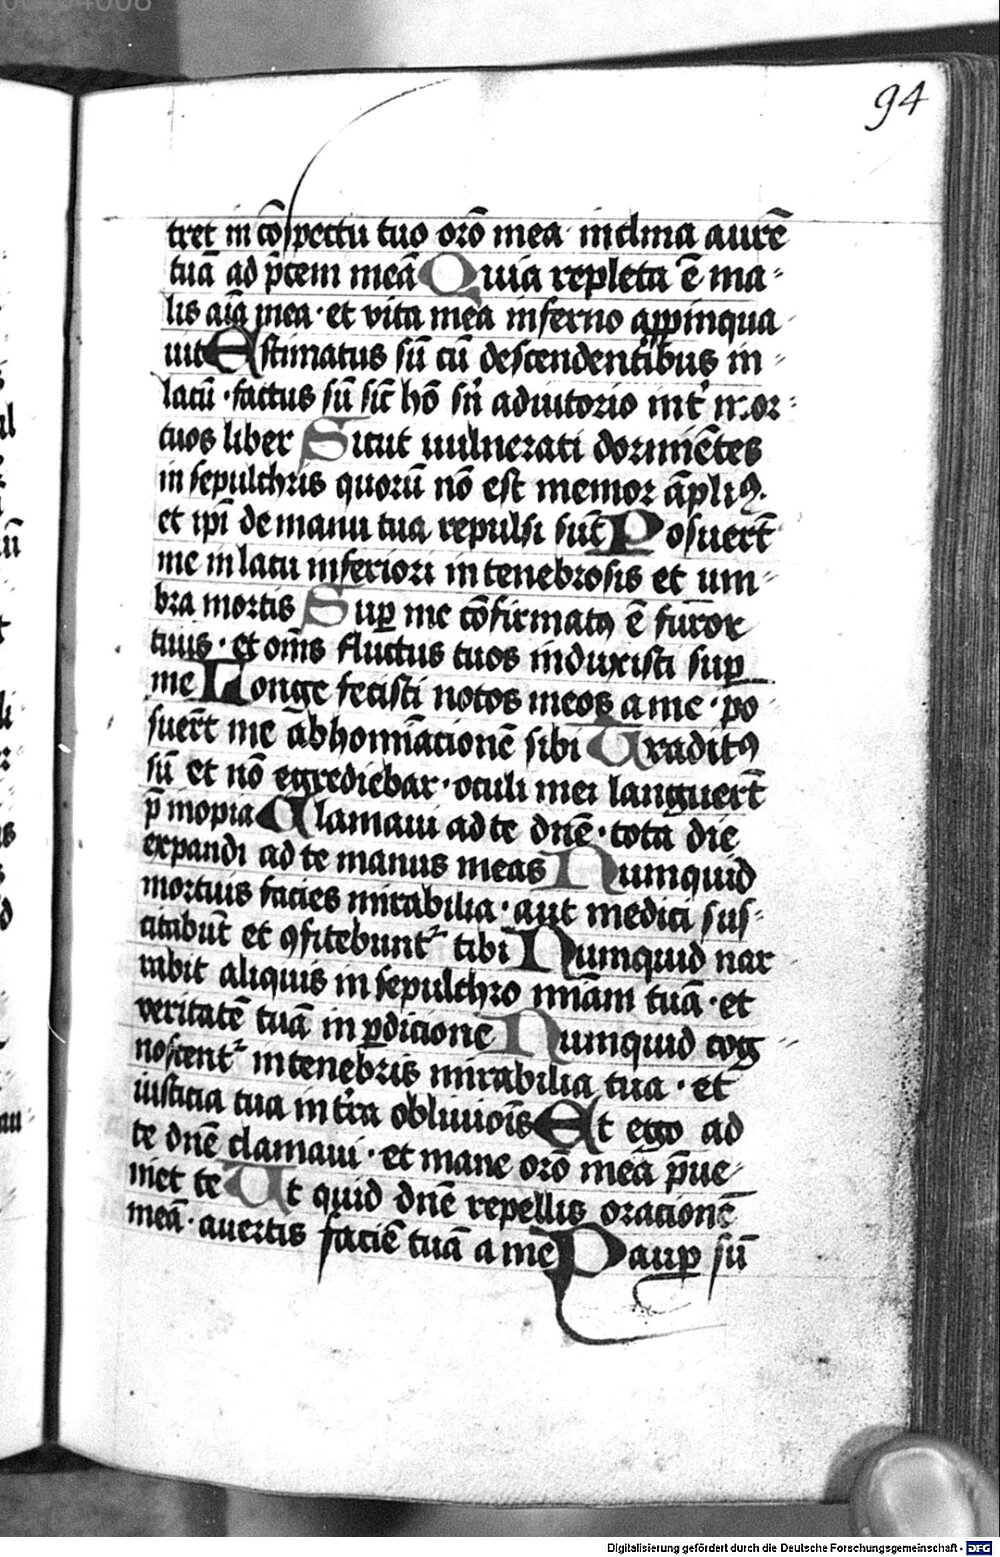 94
tret in cōspectu tuo orō mea inclina aurē
tuā ad p̄cem meā Quia repleta ē ma-
lis aīa mea · et vita mea inferno appinqua
uit Estimatus sū cū descendentibus in-
lacū · factus sū sic̄ hō sn̄ adiutorio int̉ mor-
tuos liber Sicut uulnerati dormiētes
in sepulchris quorū nō est memor āpliꝯ
et ip̄i de manu tua repulsi sūt Posuert̄
me in lacu inferiori in tenebrosis et um-
bra mortis Suꝑ me cōfirmatꝯ ē furor
tuus · et om̄s fluctus tuos induxisti suꝑ
me Longe fecisti notos meos a me · po
suert̄ me ābhominācionē sibi Traditꝯ
sū et nō egrediebar · oculi mei languert̄
p̄ inopia Clamaui ad te dn̄e · tota die
expandi ad te manus meas Numquid
mortuis facies mirabilia · aut medici sus-
citabūt et ꝯfitebunt᷑ tibi Numquid nar
rabit aliquis in sepulchro mīam tuā · et
veritatē tuā in ꝑdicione Numquid cog-
noscent᷑ in tenebris mirabilia tua · et
iusticia tua in tr̄ra obliuiōis Et ego ad
te dn̄e clamaui · et mane orō meā p̄ue-
niet te Ut quid dn̄e repellis oracionē
meā · auertis faciē tuā a me Pauꝑ sū
Digitalisierung gefördert durch die Deutsche Forschungsgemeinschaft - DFG